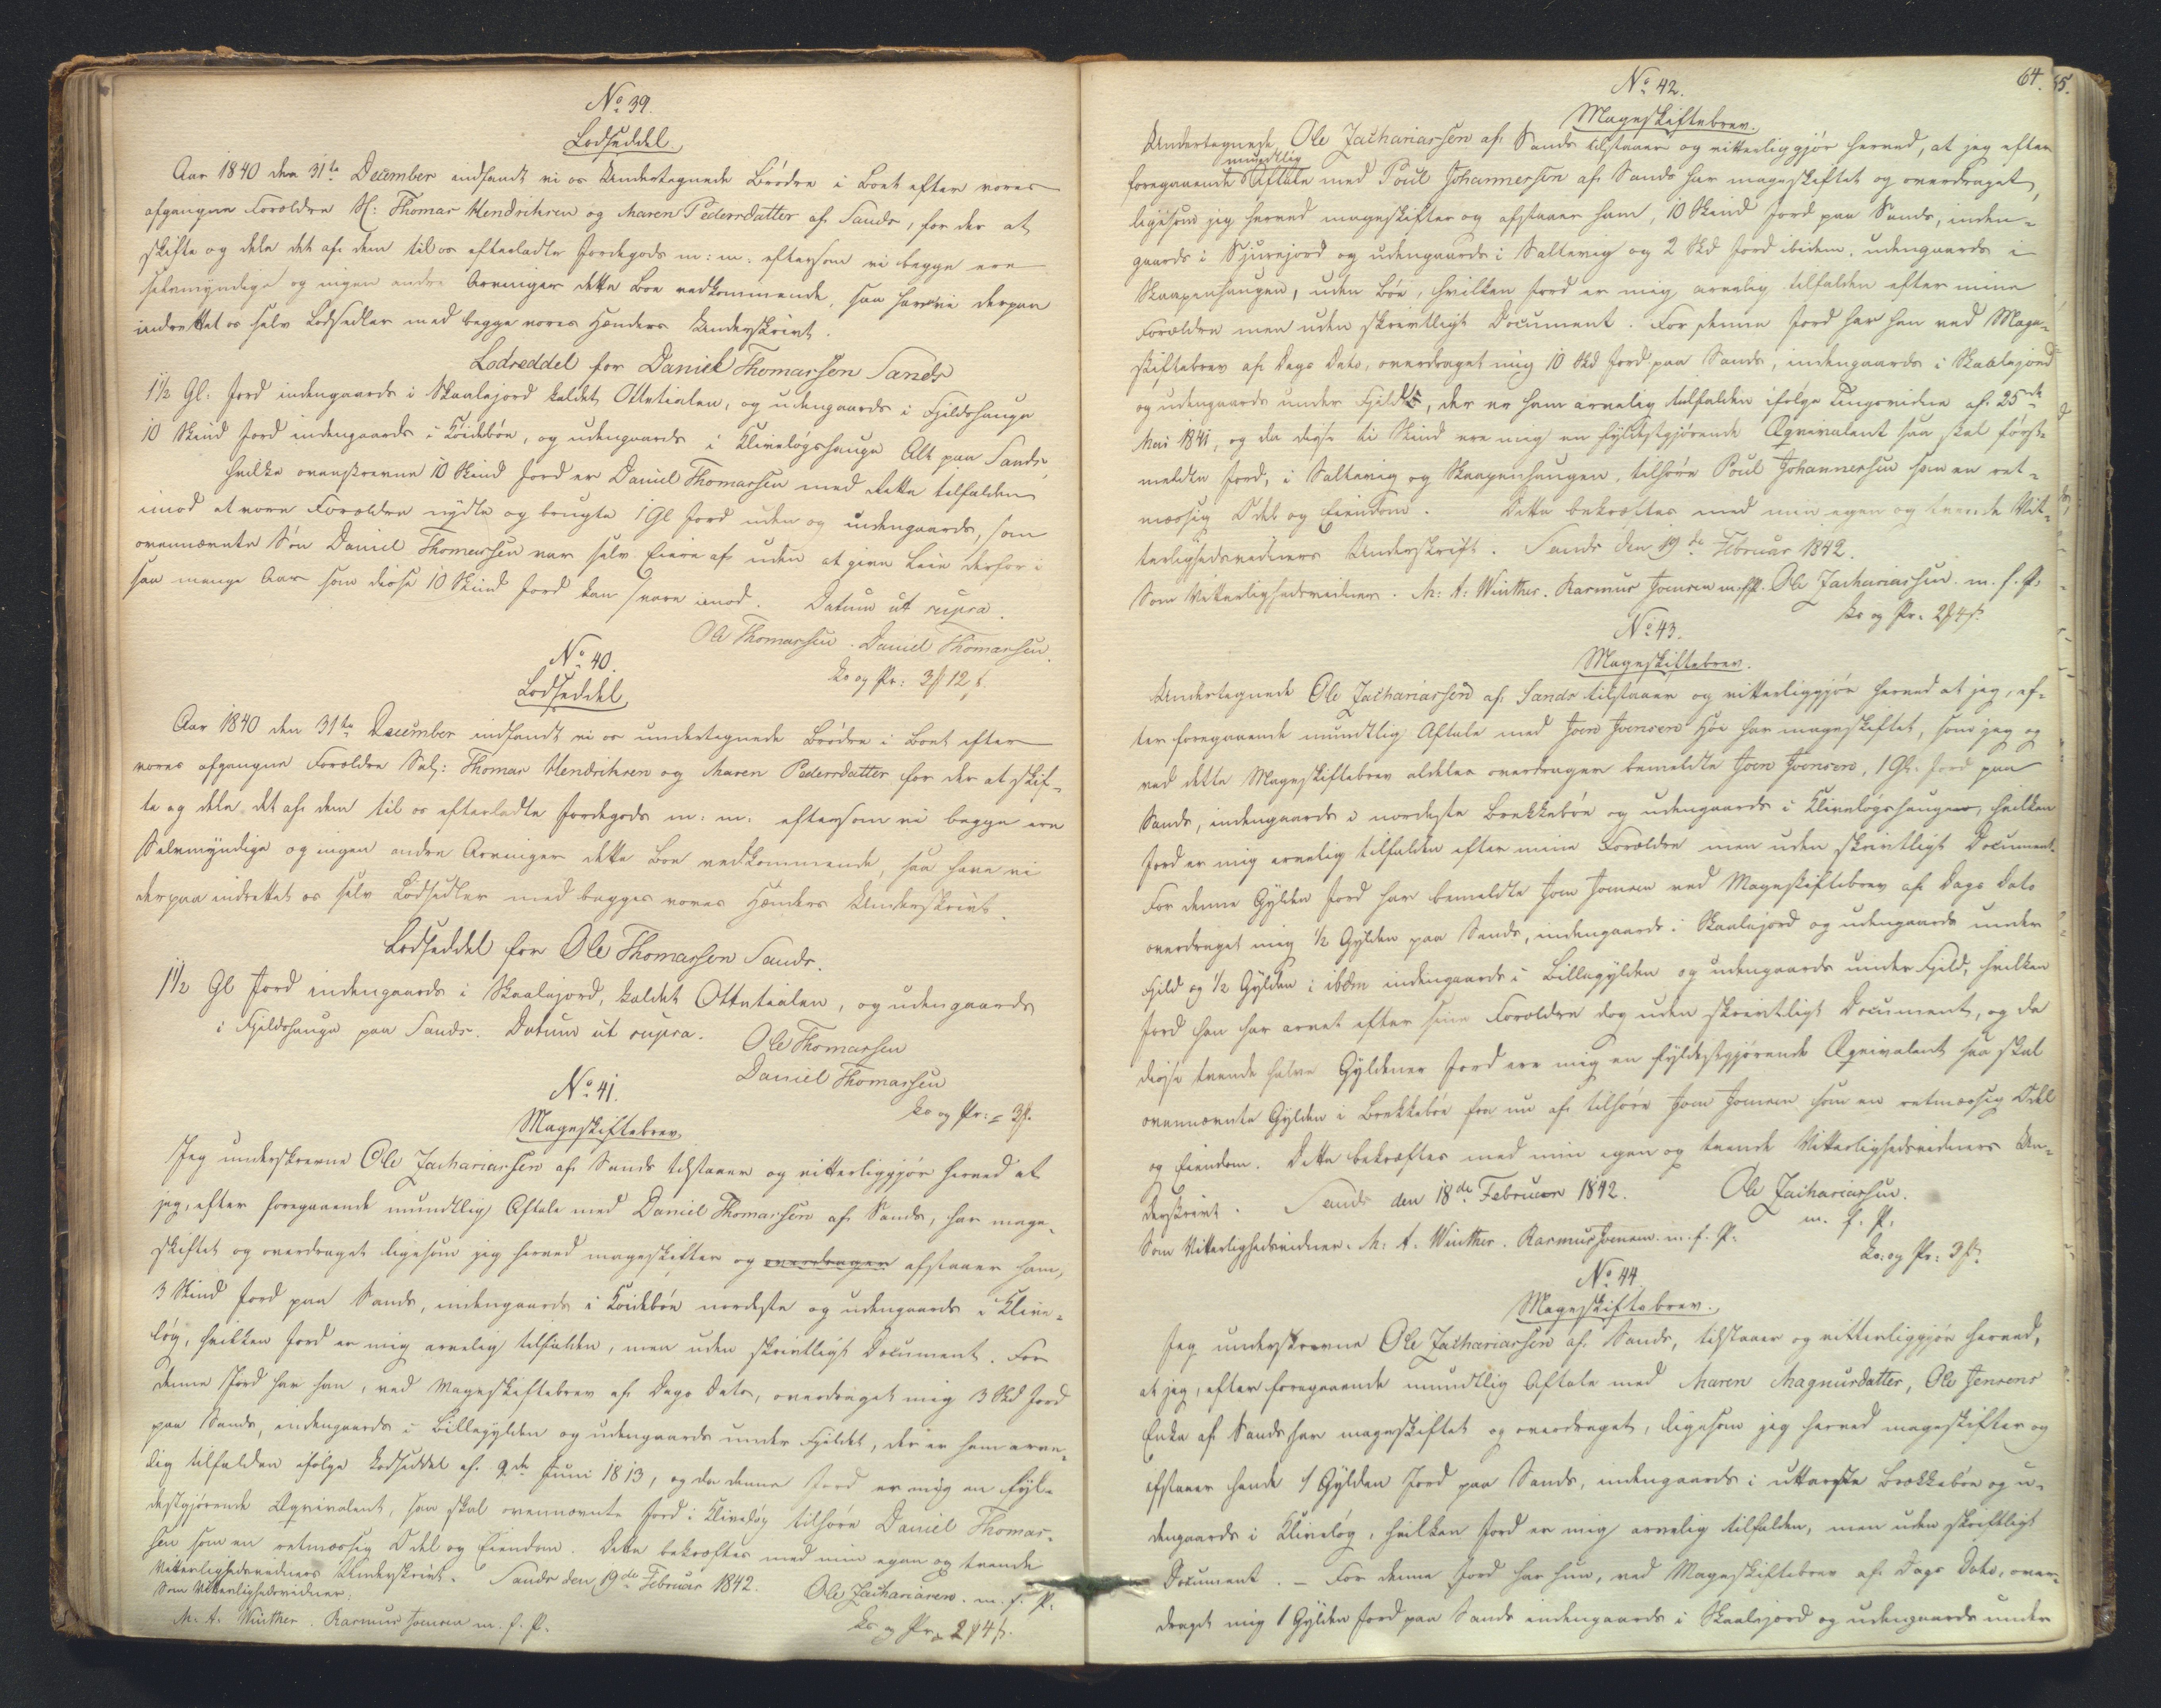 No 39.
Lodseddel.
Aar 1840 den 31te December indfandt vi os Undertegnede Brödre i Boet efter vores
afgangne Forældre Sl: Thomas Hendriksen og Maren Pedersdatter af Sands, for der at
skifte og dele det af dem til os efterladte Jordegods m: m: eftersom vi begge ere
selvmyndige og ingen andre Arvinger dette Boe vedkommende, saa have vi derpaa
indrettet os selv Lodsedler med begge vores Hænders Underskrivt.
Lodseddel for Daniel Thomassen Sands
1 1/2 Gl: Jord indengaards i Skaalajord kaldet Ottetialen, og udengaards i Fjeldshauge
10 Skind Jord indengaards i Koidebøe, og udengaards i Kliveløgshauge Alt paa Sands,
hvilke ovenskrevne 10 Skind Jord er Daniel Thomassen med dette tilfalden
imod at vore Forældre nydte og brugte 1 Gl Jord uden og indengaards, som
ovennævnte Søn Daniel Thomassen var selv Eiere af uden at give Leie derfor i
saa mange Aar som disse 10 Skind Jord kan svare imod. Datum ut supra.
Ole Thomassen. Daniel Thomassen.
No 40.
Lodseddel
Aar 1840 den 31te December indfandt vi os undertegnede Brödre i Boet efter
vores afgangne Forældre Sal: Thomas Hendriksen og Maren Pedersdatter for der at skif-
te og dele det af dem til os efterladte Jordegods m: m: eftersom vi begge ere
Selvmyndige og ingen andre Arvinger dette Boe vedkommende, saa have vi
derpaa indrettet os selv Lodsedler med begges vores Hænders Underskrivt.
Lodseddel for Ole Thomassen Sands.
1 1/2 Gl Jord indengaards i Skaalajord, kaldet Ottetialen, og udengaards
i Fjeldshauge paa Sands. Datum ut supra.
Ole Thomassen
Daniel Thomassen
No 41.
Mageskiftebrev
Jeg underskrevne Ole Zachariassen af Sands tilstaaer og vitterliggjør herved at
jeg, efter foregaaende mundtlig Aftale med Daniel Thomassen af Sands, har mage-
skiftet og overdraget ligesom jeg herved mageskifter og overdrager afstaaer ham,
3 Skind Jord paa Sands, indengaards i Koidebøe nordeste og udengaards i Klive-
løg, hvilken Jord er mig arvelig tilfalden, men uden skrivtligt Document. For
denne Jord har han, ved Mageskiftebrev af Dags Dato, overdraget mig 3 Skd Jord
paa Sands, indengaards i Billagylden og udengaards under Fjeldet, der er ham arve-
lig tilfalden ifølge Lodseddel af 9de Juni 1813, og da denne Jord er mig en fyl-
destgjørende Æqvivalent, saa skal ovennævnte Jord i Kliveløg tilhøre Daniel Thomas-
sen som en retmæssig Odel og Eiendom. Dette bekræftes med min egen og tvende
Vitterlighedsvidners Underskrivt. Sands den 19de Februar 1842. Ole Zachariasen. m. f. P.
Som Vitterlighedsvidner:
M. A. Winther. Rasmus Joensen m. f. P.
64.
No 42.
Mageskiftebrev.
Undertegnede Ole Zachariassen af Sands tilstaaer og vitterliggjør herved, at jeg efter
mundtlig
foregaaende Aftale med Poul Johannessen af Sands har mageskiftet og overdraget,
ligesom jeg herved mageskifter og afstaaer ham, 10 Skind Jord paa Sands, inden-
gaards i Sjurajord og udengaards i Saltevig og 2 Skd Jord ibidem, udengaards i
Skaapenhaugen, uden Bøe, hvilken Jord er mig arvelig tilfalden efter mine
Forældre men uden skrivtligt Document. For denne Jord har han ved Mage-
skiftebrev af Dags Dato, overdraget mig 10 Skd Jord paa Sands, indengaards i Skaalajord
og udengaards under Fjeldet, der er ham arvelig tilfalden ifølge Tingsvidne af 25de
Mai 1841, og da disse ti Skind ere mig en fyldestgjørende Æqvivalent saa skal først-
meldte Jord, i Saltevig og Skaapenhaugen, tilhøre Poul Johannessen som en ret-
mæssig Odel og Eiendom. Dette bekræftes med min egen og tvende Vit-
terlighedsvidners Underskrift. Sands den 19de Februar 1842.
Som Vitterlighedsvidner. M: A: Winther. Rasmus Joensen m.f.P. Ole Zachariassen. m. f. P.
No 43.
Mageskiftebrev.
Undertegnede Ole Zachariassen af Sands tilstaaer og vitterliggjør herved at jeg, ef-
ter foregaaende mundtlig Aftale med Joen Joensen Høe har mageskiftet, som jeg og
ved dette Mageskiftebrev aldeles overdrager bemeldte Joen Joensen, 1 Gl. Jord paa
Sands, indengaards i nordeste Brekkebøe og udengaards i Kliveløgshaugen, hvilken
Jord er mig arvelig tilfalden efter mine Forældre men uden skrivtligt Document.
For denne Gylden Jord har bemeldte Joen Joensen ved Mageskiftebrev af Dags Dato
overdraget mig 1/2 Gylden paa Sands, indengaards i Skaalajord og udengaards under
Fjeld og 1/2 Gylden i ibdm indengaards i Billagylden og udengaards under Fjeld, hvilken
Jord han har arvet efter sine Forældre dog uden skrivtligt Document, og da
disse tvende halve Gyldener Jord ere mig en fyldestgjørende Æqvivalent saa skal
ovennævnte Gylden i Brekkebøe fra nu af tilhøre Joen Joensen som en retmæssig Odel
og Eiendom. Dette bekræftes med min egen og tvende Vitterlighedsvidners Un-
derskrivt. Sands den 18de Februar 1842. Ole Zachariassen.
m. f. P.
Som Vitterlighedsvidner. M: A. Winther. Rasmus Joensen. m. f. P.
No 44.
Mageskiftebrev.
Jeg underskrevne Ole Zachariassen af Sands, tilstaaer og vitterliggjør herved,
at jeg, efter foregaaende mundtlig Aftale med Maren Magnusdatter, Ole Jensens
Enke af Sands har mageskiftet og overdraget, ligesom jeg herved mageskifter og
afstaaer hende 1 Gylden Jord paa Sands, indengaards i uttarste Brækkebøe og u-
dengaards i Kliveløg, hvilken Jord er mig arvelig tilfalden, men uden skriftligt
Document. – For denne Jord har hun, ved Mageskiftebrev af Dags Dato, over-
draget mig 1 Gylden Jord paa Sands indengaards i Skaalajord og udengaards under